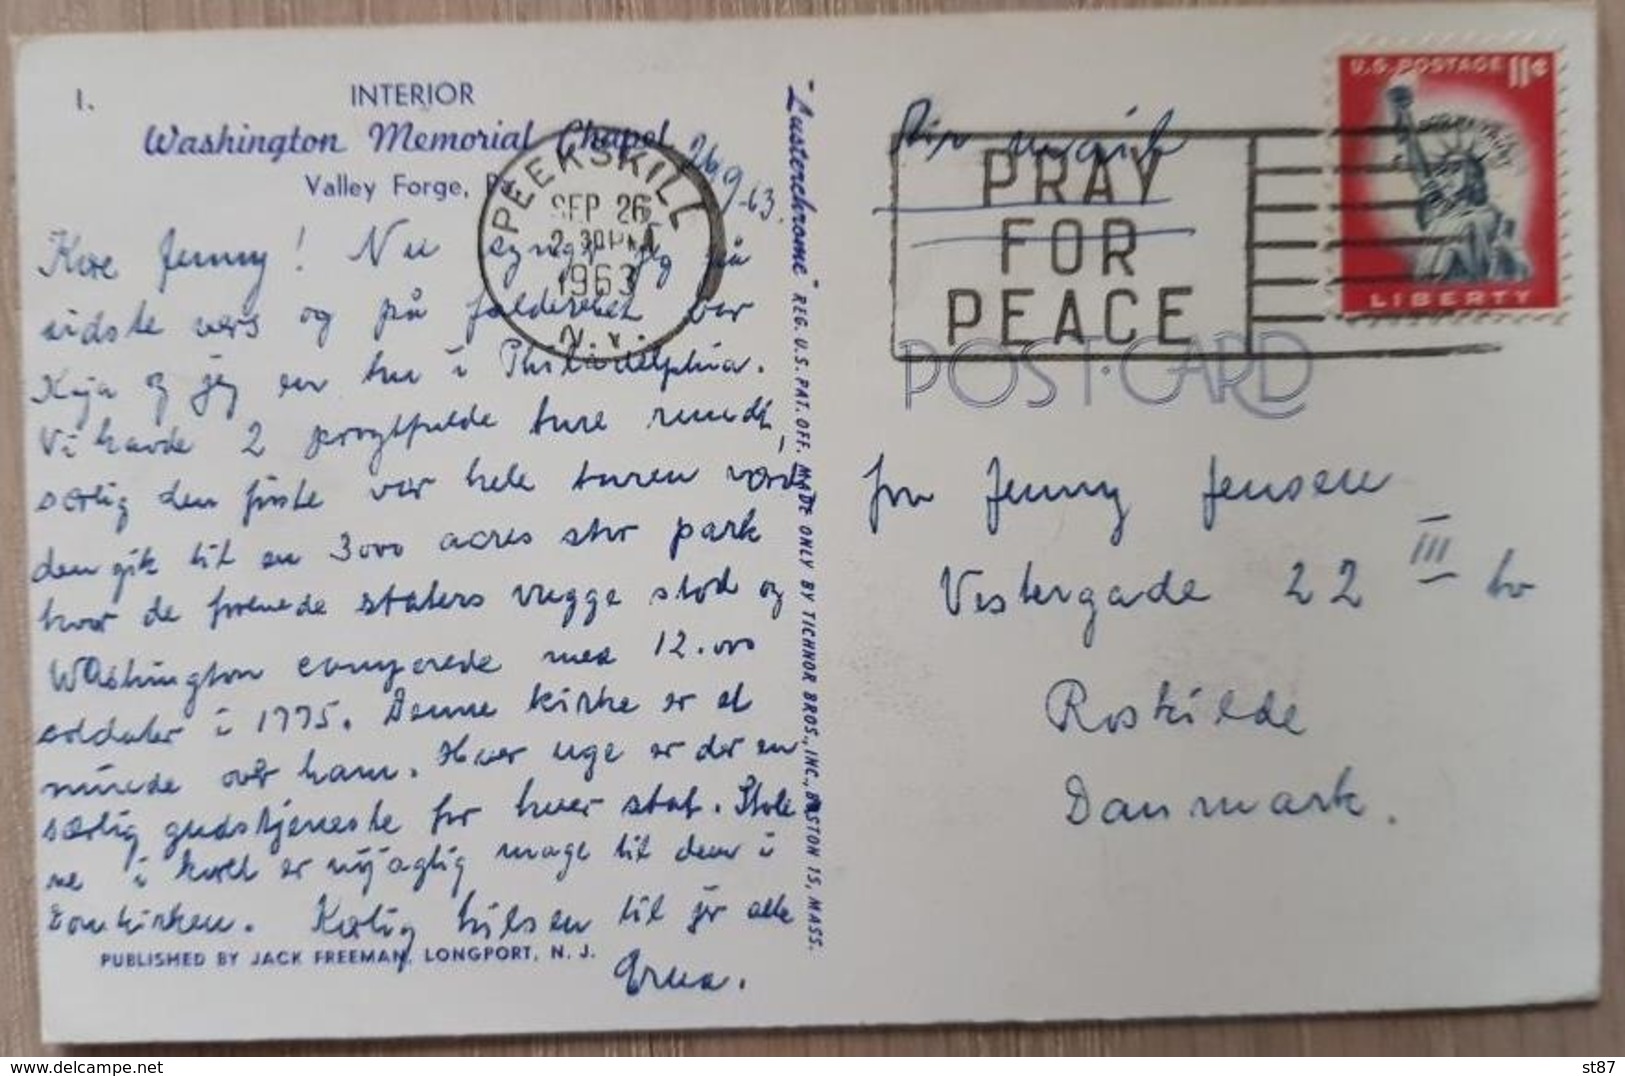 1.
INTERIOR
Washington Memorial Chapel
Valley Forge, Pa.
26/9-63.
PEEKSKILL
SEP 26
2 30 PM
1963
N.Y.
Kære Jenny! Nu synger jeg på
sidste vers og på falderebet var
Kaja og jeg en tur i Philadelphia.
Vi havde 2 pragtfulde ture rundt,
særlig den første var hele turen værd
den gik til en 3000 acres stor park
hvor de forenede staters vugge stod og
Washington camperede med 12.000
soldater i 1775. Denne kirke er et
minde over ham. Hver uge er der en
særlig gudstjeneste for hver stat. Stole
ne i koret er nøjagtig mage til dem i
Domkirken. Kærlig hilsen til jer alle
Erna.
PUBLISHED BY JACK FREEMAN, LONGPORT, N. J.
"Lusterchrome" REG. U.S. PAT. OFF. MADE ONLY BY TICHNOR BROS., INC., BOSTON 15, MASS.
Air mail
PRAY
FOR
PEACE
U.S. POSTAGE 11¢
LIBERTY
POST CARD
Fru Jenny Jensen
Vestergade 22 III tv
Roskilde
Danmark.
st87